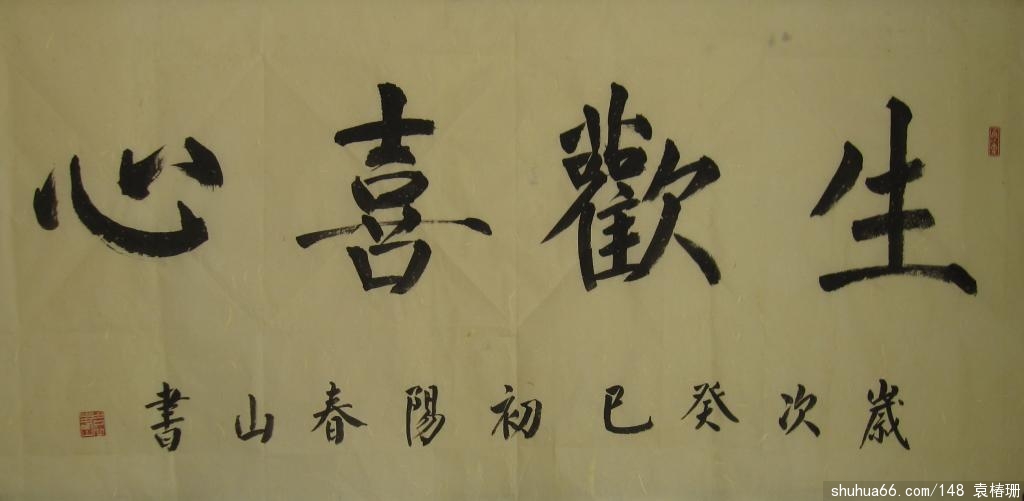 生歡喜心
歲次癸巳初陽春山書
shuhua66.com/148 袁椿珊